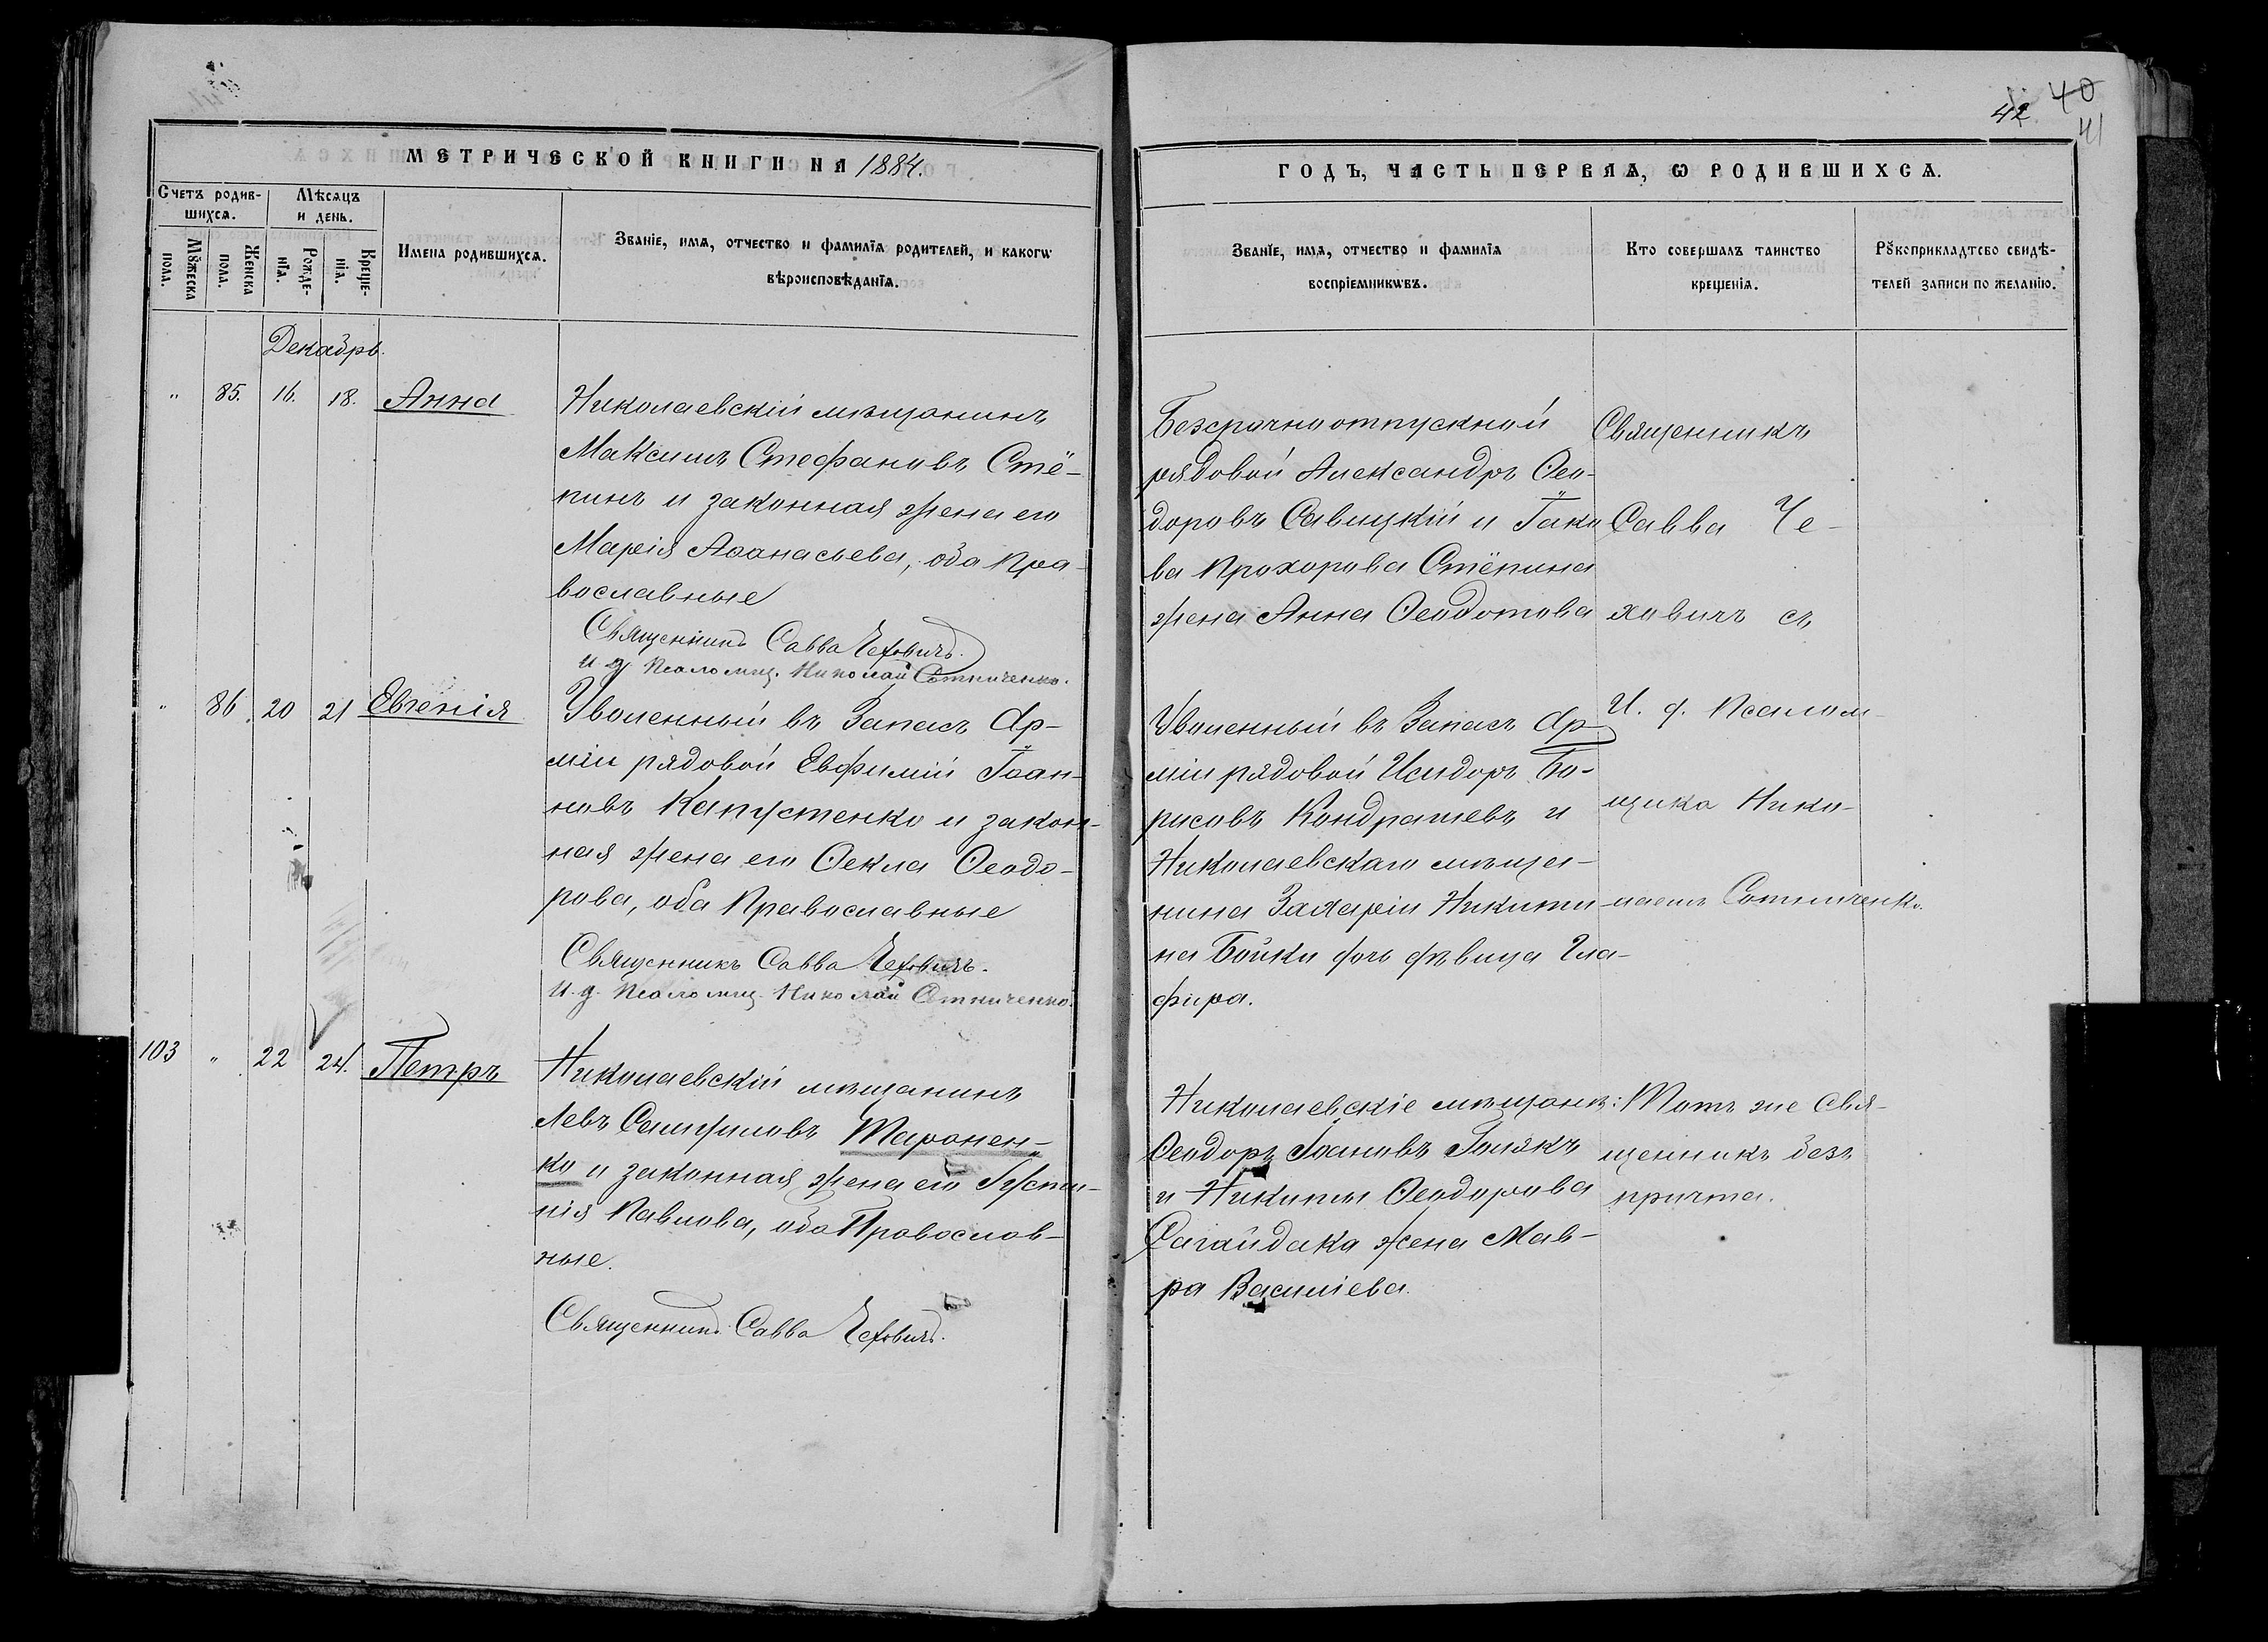 МЕТРИЧЕСКОЙ КНИГИ НА 1884.
Счетъ родив-
шихсѧ.
Мѣсѧцъ
и день.
Мꙋжеска
пола.
Женска
пола.
Рожде-
нїѧ.
Креще-
нїѧ.
Имена родившихсѧ.
Званїе, имѧ, отчество и фамилїѧ родителей, и какогѡ
вѣроисповѣданїѧ.
Декабрь.
" 85. 16. 18. Анна
Николаевскій мѣщанинъ
Максимъ Стефановъ Стё-
пинъ и законная жена его
Марія Аѳанасьева, оба Пра-
вославные
Священникъ Савва Чеховичъ.
И. д. Псаломщ. Николай Сотниченко.
" 86. 20 21 Евгенія
Уволенный въ Запасъ Ар-
міи рядовой Евфимій Іоан-
новъ Капустенко и закон-
ная жена его Ѳекла Ѳеодо-
рова, оба Православные
Священникъ Савва Чеховичъ.
И. д. Псаломщ. Николай Сотниченко.
103 " 22 24. Петръ
Николаевскій мѣщанинъ
Левъ Самуиловъ Таранен-
ко и законная жена его Іусти-
нія Павлова, оба Православ-
ные.
Священникъ Савва Чеховичъ.
42 40
41
ГОДЪ, ЧАСТЬ ПЕРВАѦ, Ѡ РОДИВШИХСѦ.
Званїе, имѧ, отчество и фамилїѧ
воспрїемникѡвъ.
Кто совершалъ таинство
крещенїѧ.
Рꙋкоприкладтсво свидѣ-
телей записи по желанїю.
Безсрочноотпускной
рядовой Александръ Ѳео-
доровъ Савицкій и Іако
ва Прохорова Стёпина
жена Анна Ѳеодотова
Священникъ
Савва Че-
ховичъ съ
Уволенный въ Запасъ Ар-
міи рядовой Исидоръ Бо-
рисовъ Кондрашевъ и
Николаевскаго мѣща-
нина Захаріи Никити-
на Бойки дочь дѣвица Гла-
фира.
И. д. Псалом-
щика Нико-
лаемъ Сотниченко.
Николаевскіе мѣщане:
Ѳеодоръ Іоановъ Голякъ
и Никиты Ѳеодорова
Сагайдака жена Мав-
ра Василіева.
Тотъ же Свя-
щенникъ безъ
причта.